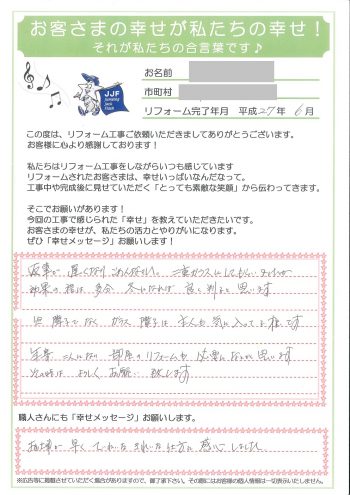 お客さまの幸せが私たちの幸せ！
それが私たちの合言葉です♪
JJF
お名前
市町村
リフォーム完了年月 平成27年 6月
この度は、リフォーム工事ご依頼いただきましてありがとうございます。
お客様に心より感謝しております！
私たちはリフォーム工事をしながらいつも感じています
リフォームされたお客さまは、幸せいっぱいなんだなって。
工事中や完成後に見せていただく「とっても素敵な笑顔」から伝わってきます。
そこでお願いがあります！
今回の工事で感じられた「幸せ」を教えていただきたいです。
お客さまの幸せが、私たちの活力とやりがいになります。
ぜひ「幸せメッセージ」お願いします！
返事が遅くなり ごめんなさい。二重ガラスにしてもらいましたが
効果の程は 多分 冬になれば 良く判ると思います
但 障子でなく ガラス障子は 本人も気に入ってる様です
部屋のリフォームも 思います
次の時は よろしく お願い 致します
職人さんにも「幸せメッセージ」お願いします。
早く ていねいな きれいな仕方に 感心しました
※広告等に掲載させていただく場合がありますので、御了承下さい。その際にはお客様の個人情報は一切表示いたしません。